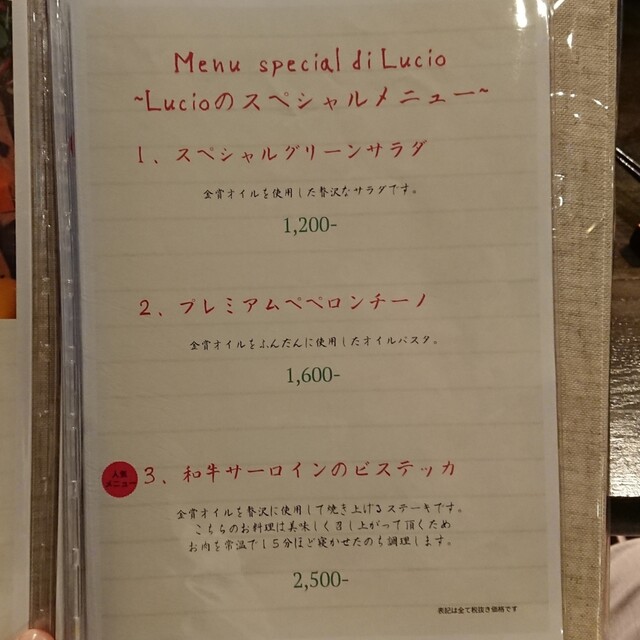 Menu special di Lucio
~Lucioのスペシャルメニュー~
1、スペシャルグリーンサラダ
金賞オイルを使用した贅沢なサラダです。
1,200-
2、プレミアムペペロンチーノ
金賞オイルをふんだんに使用したオイルパスタ。
1,600-
人気
メニュー
3、和牛サーロインのビステッカ
金賞オイルを贅沢に使用して焼き上げるステーキです。
こちらのお料理は美味しく召し上がって頂くため
お肉を常温で15分ほど寝かせたのち調理します。
2,500-
表記は全て税抜き価格です